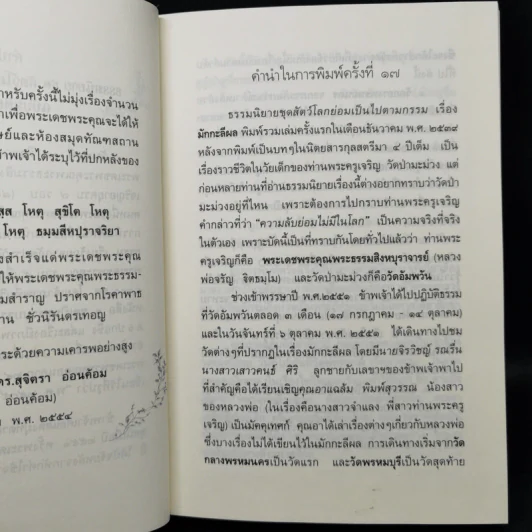 าหรับครั้งนี้ไม่มุ่งเรื่องจำนวน
าเพื่อพระเดชพระคุณจะได้ให้
ษย์และห้องสมุดทัณฑสถาน
ข้าพเจ้าได้ระบุไว้ที่ปกหลังของ
สุส โหตุ สุขิโต โหตุ
โหตุ ธมฺมสีหปุราจริยา
งสำเร็จแด่พระเดชพระคุณ
ให้พระเดชพระคุณพระธรรม-
มสำราญ ปราศจากโรคาพาธ
าน ชั่วนิรันตรเทอญ
ระด้วยความเคารพอย่างสูง
ดร.สุจิตรา อ่อนค้อม
อ่อนค้อม)
พ.ศ. ๒๕๕๔
คำนำในการพิมพ์ครั้งที่ ๑๗
ธรรมนิยายชุดสัตว์โลกย่อมเป็นไปตามกรรม เรื่อง
มักกะลีผล พิมพ์รวมเล่มครั้งแรกในเดือนธันวาคม พ.ศ. ๒๕๓๙
หลังจากพิมพ์เป็นบทๆในนิตยสารกุลสตรีมา ๔ ปีเต็ม เป็น
เรื่องราวชีวิตในวัยเด็กของท่านพระครูเจริญ วัดป่ามะม่วง แต่
ก่อนหลายท่านที่อ่านธรรมนิยายเรื่องนี้ต่างอยากทราบว่าวัดป่า
มะม่วงอยู่ที่ไหน เพราะต้องการไปกราบท่านพระครูเจริญ
คำกล่าวที่ว่า “ความลับย่อมไม่มีในโลก” เป็นความจริงที่จริง
ในตัวเอง เพราะบัดนี้เป็นที่ทราบกันโดยทั่วไปแล้วว่า ท่านพระ
ครูเจริญก็คือ พระเดชพระคุณพระธรรมสิงหบุราจารย์ (หลวง
พ่อจรัญ ฐิตธมฺโม) และวัดป่ามะม่วงก็คือวัดอัมพวัน
ช่วงเข้าพรรษาปี พ.ศ.๒๕๕๑ ข้าพเจ้าได้ไปปฏิบัติธรรม
ที่วัดอัมพวันตลอด ๓ เดือน (๑๗ กรกฎาคม - ๑๔ ตุลาคม)
และในวันจันทร์ที่ ๖ ตุลาคม พ.ศ. ๒๕๕๑ ได้เดินทางไปชม
วัดต่างๆที่ปรากฏในเรื่องมักกะลีผล โดยมีนายจิรวิชญ์ รณรื่น
นางสาวเสาวคนธ์ ศิริ ลูกชายกับเลขาฯของข้าพเจ้าพาไป
ที่สำคัญคือได้เรียนเชิญคุณอาแฉล้ม พิมพ์สุวรรณ น้องสาว
ของหลวงพ่อ (ในเรื่องคือนางสาวจำแลง พี่สาวท่านพระครู
เจริญ) เป็นมัคคุเทศก์ คุณอาได้เล่าเรื่องต่างๆเกี่ยวกับหลวงพ่อ
ซึ่งบางเรื่องไม่ได้เขียนไว้ในมักกะลีผล การเดินทางเริ่มจากวัด
กลางพรหมนครเป็นวัดแรก และวัดพรหมบุรีเป็นวัดสุดท้าย